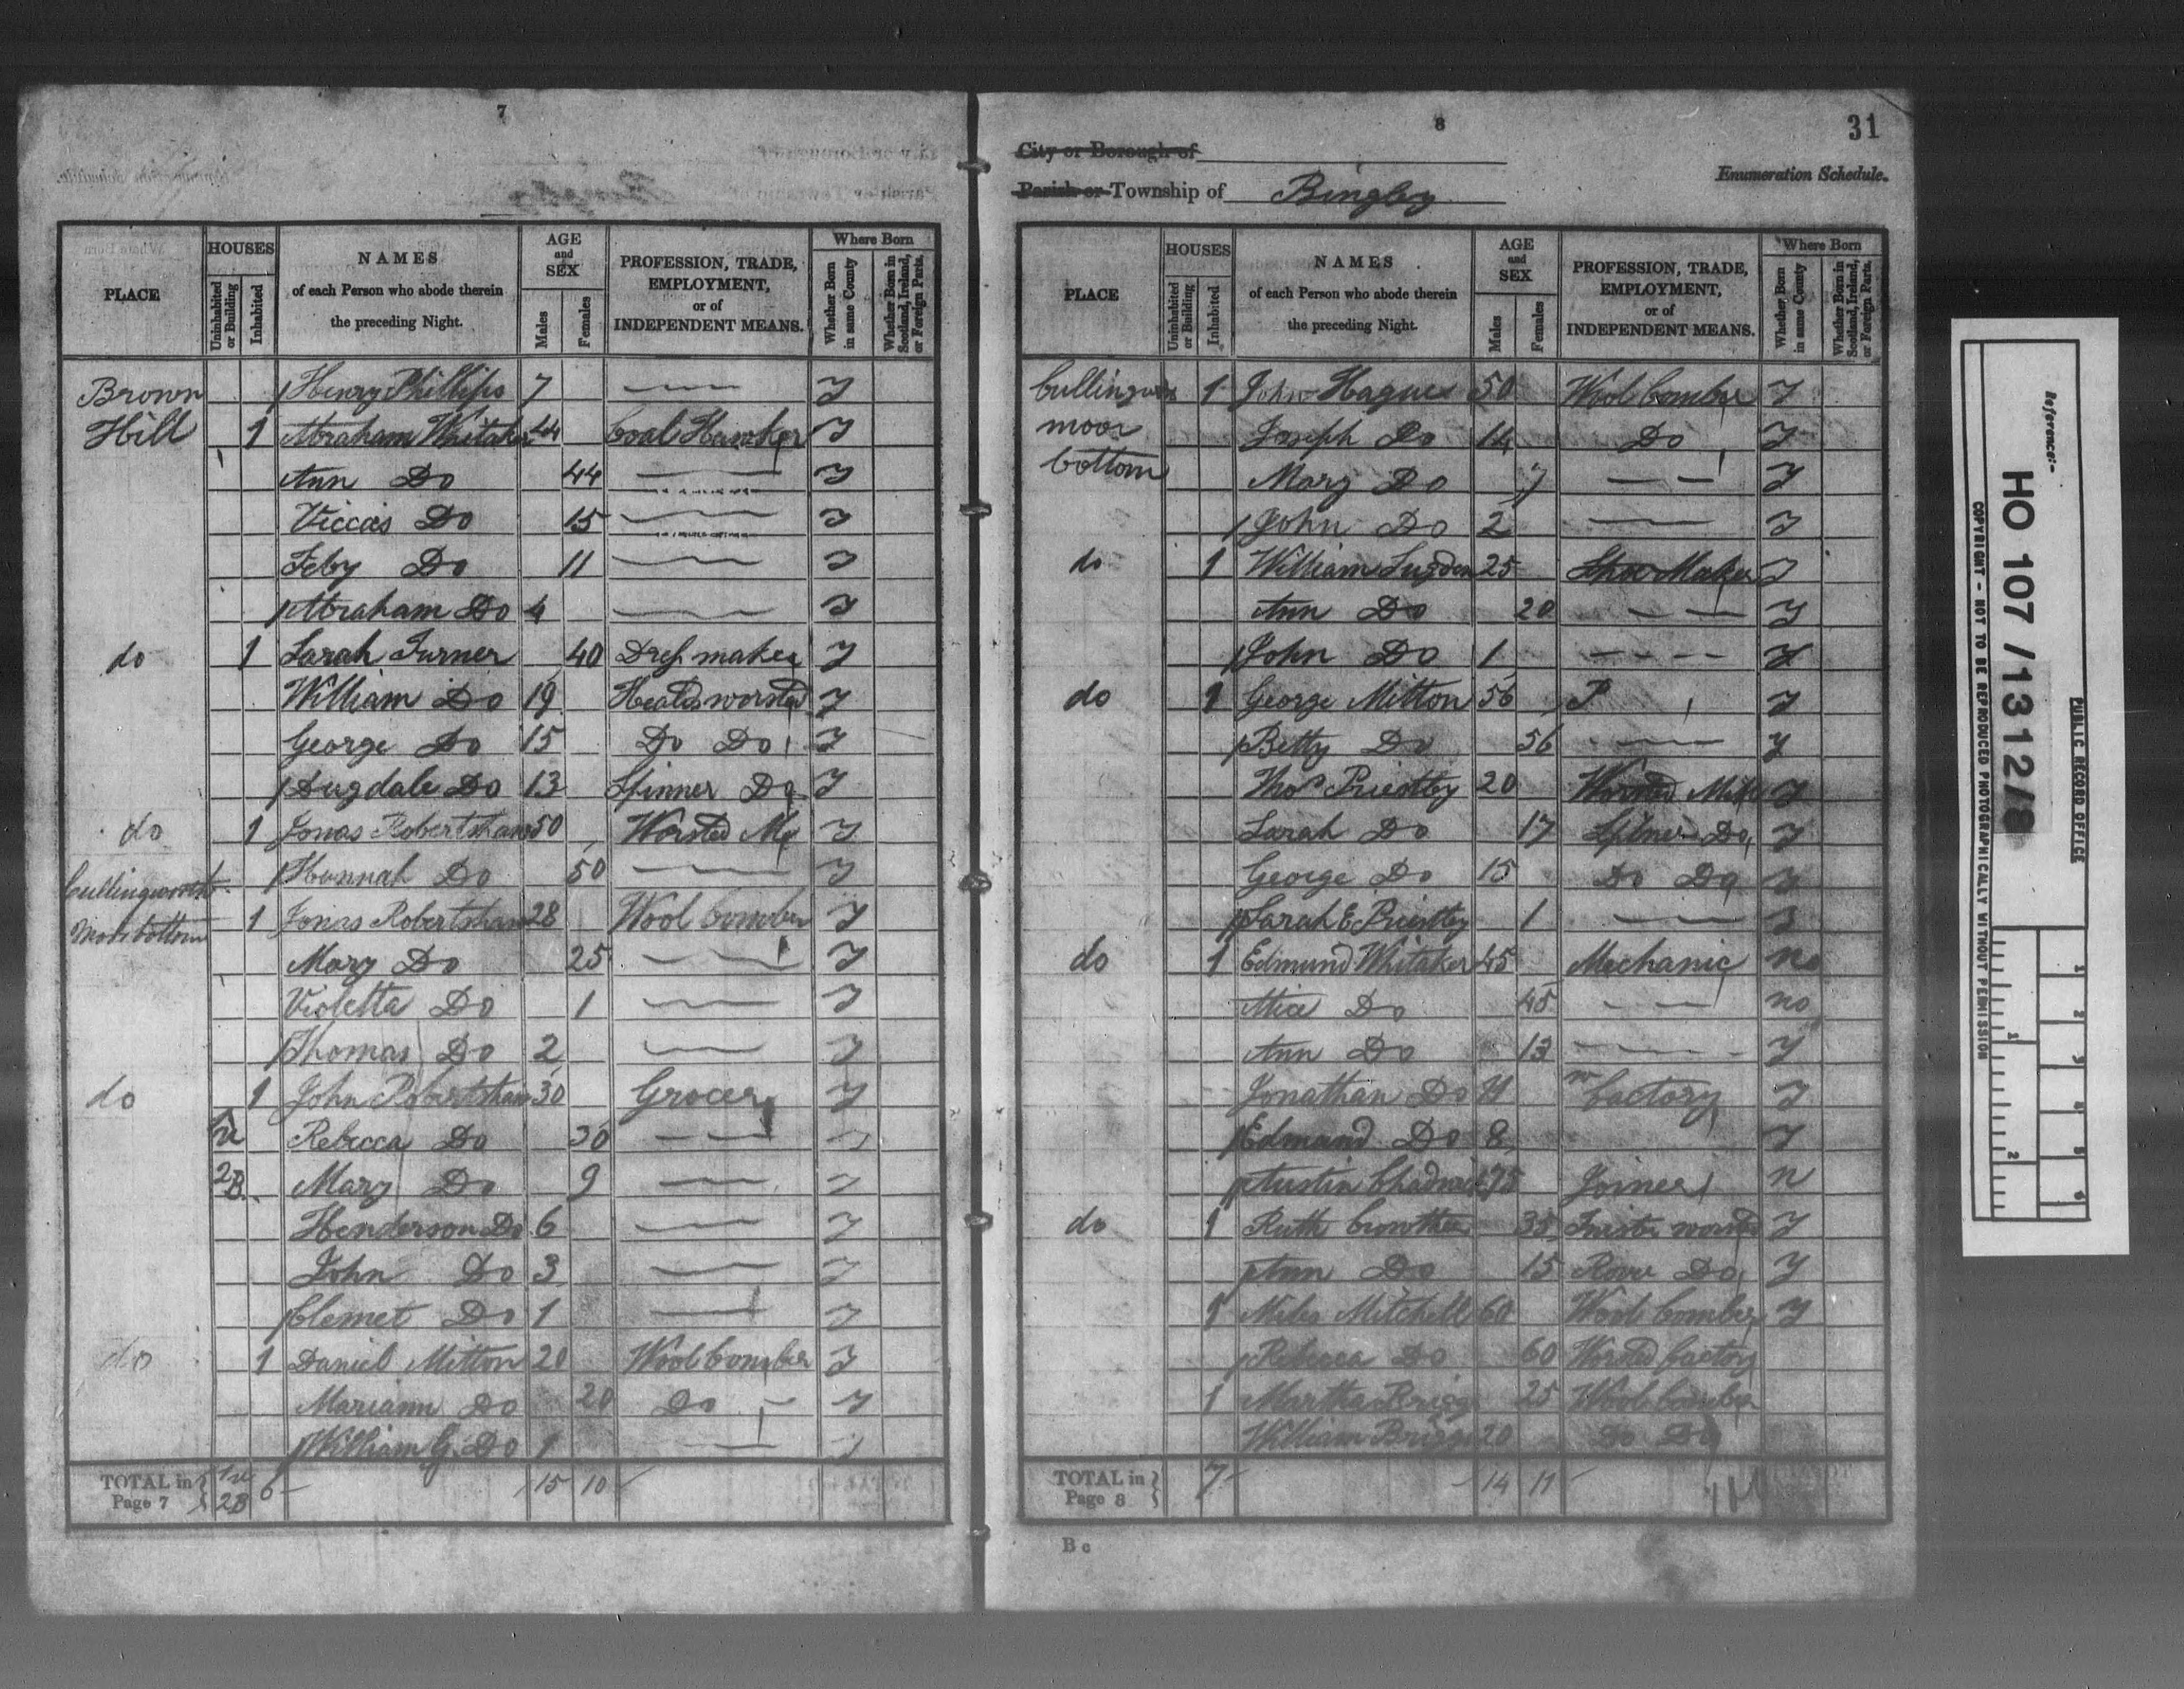 7
PLACE
HOUSES
Uninhabited or Building
Inhabited
NAMES
of each Person who abode therein
the preceding Night.
AGE
and
SEX
Males
Females
PROFESSION, TRADE,
EMPLOYMENT,
or of
INDEPENDENT MEANS.
Where Born
Whether Born in same County
Whether Born in Scotland, Ireland, or Foreign Parts.
Brown Henry Phillips 7 Y
Hill 1 Abraham Whitaker 44 Coal Hawker Y
Ann Do 44 Y
Do 15 Y
Feby Do 11 Y
Abraham Do 4 Y
do 1 Sarah Turner 40 Dress maker Y
William Do 19 worsted Y
George Do 15 Do Do Y
Dugdale Do 13 Spinner Do Y
do 1 Jonas Robertshaw 50 Worsted Y
Cullingworth Hannah Do 50 Y
Moor bottom 1 Jonas Robertshaw 28 Wool Comber Y
Mary Do 25 Y
Violetta Do 1 Y
Thomas Do 2 Y
do 1 John Robertshaw 30 Grocer Y
1u Rebecca Do 30 Y
2B Mary Do 9 Y
Henderson Do 6 Y
John Do 3 Y
Clemet Do 1 Y
do 1 Daniel Mitton 20 Wool Comber Y
Mariann Do 20 Do Y
William G. Do 1 Y
TOTAL in Page 7 1u 2B 6 15 10
8
31
City or Borough of
Enumeration Schedule.
Parish or Township of Bingley
PLACE
HOUSES
Uninhabited or Building
Inhabited
NAMES
of each Person who abode therein
the preceding Night.
AGE
and
SEX
Males
Females
PROFESSION, TRADE,
EMPLOYMENT,
or of
INDEPENDENT MEANS.
Where Born
Whether Born in same County
Whether Born in Scotland, Ireland, or Foreign Parts.
1 John Hague 50 Wool Comber Y
moor Joseph Do 14 Do Y
bottom Mary Do 7 Y
John Do 2 Y
do 1 William Sugden 25 Shoe Maker Y
Ann Do 20 Y
John Do 1 Y
do 1 George Mitton 56 Y
Betty Do 56 Y
Thos Priestley 20 Worsted Y
Sarah Do 17 Do Y
George Do 15 Do Do Y
Sarah E Priestley 1 Y
do 1 Edmund Whitaker 45 Mechanic no
Alice Do 45 no
Ann Do 13 Y
Jonathan Do factory Y
Edmund Do 8 Y
Austin 75 Joiner N
do 1 Ruth Crowther 35 worsted Y
Ann Do 15 Do Y
1 Miles Mitchell 60 Wool Comber Y
Rebecca Do 60 Worsted factory
1 Martha Brigg 25 Wool Comber
William Brigg 20 Do Do
TOTAL in Page 8 7 14 11
B c
Reference:-
HO 107/1312/8
PUBLIC RECORD OFFICE
COPYRIGHT - NOT TO BE REPRODUCED PHOTOGRAPHICALLY WITHOUT PERMISSION